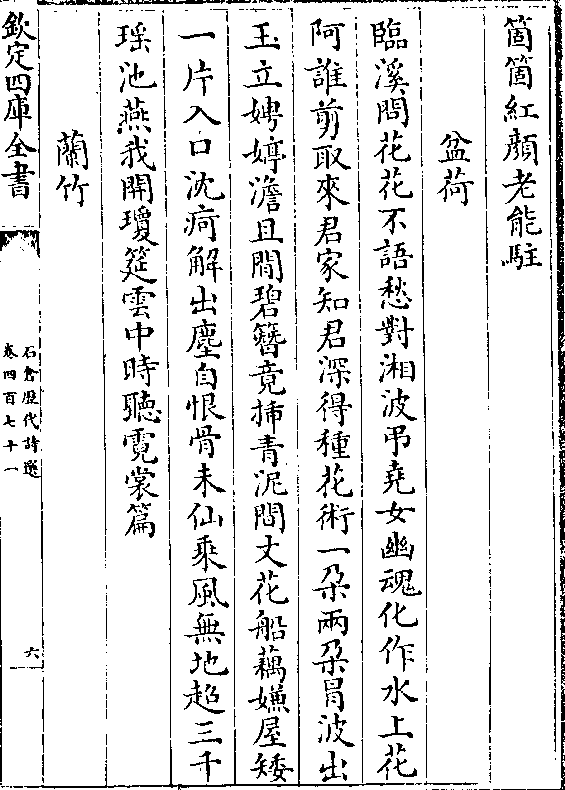 箇箇紅顔老能駐
盆荷
臨溪問花花不語愁對湘波弔堯女幽魂化作水上花
阿誰剪取來君家知君深得種花術一朶兩朶冒波出
玉立娉婷澹且閒碧簪竟揷青泥間丈花船藕嫌屋矮
一片入口沈痾解出塵自恨骨未仙乘風無地超三千
瑶池燕我開瓊筵雲中時聽霓裳篇
蘭竹
欽定四庫全書
石倉歴代詩選
卷四百七十一
六